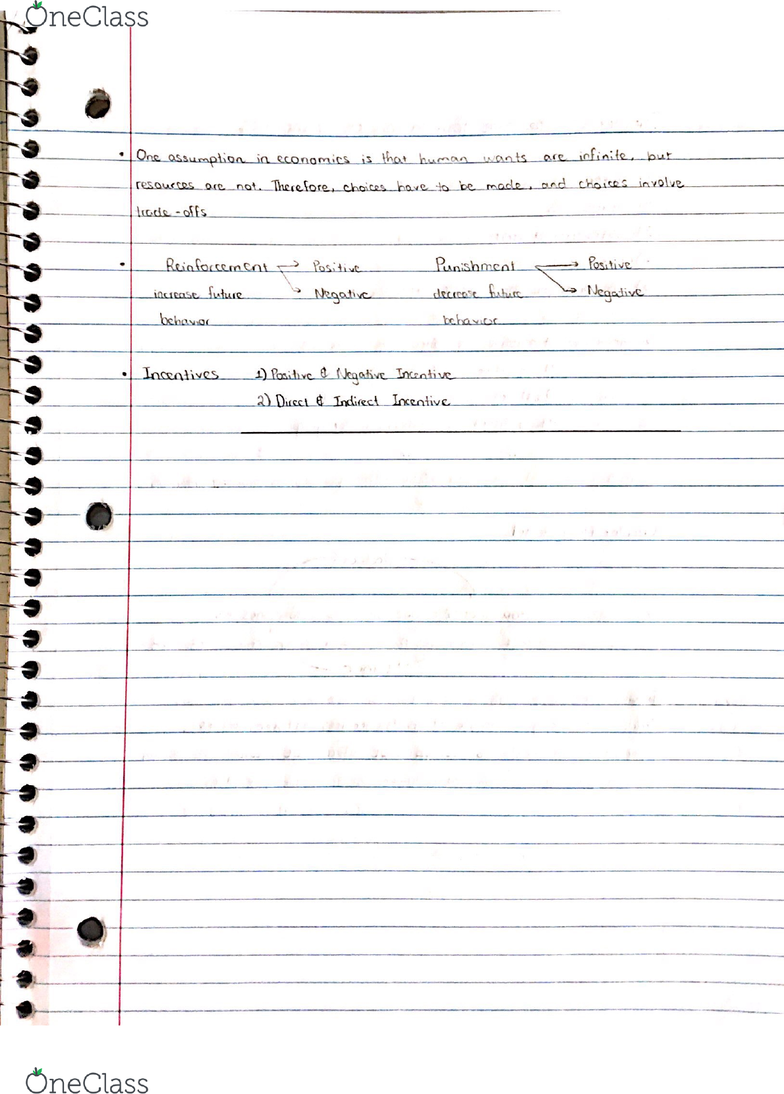 OneClass
• One assumption in economics is that human wants are infinite, but
resources are not. Therefore, choices have to be made, and choices involve
trade-offs
• Reinforcement → Positive Punishment → Positive
increase future → Negative decrease future → Negative
behavior behavior
• Incentives 1) Positive & Negative Incentive
2) Direct & Indirect Incentive
OneClass